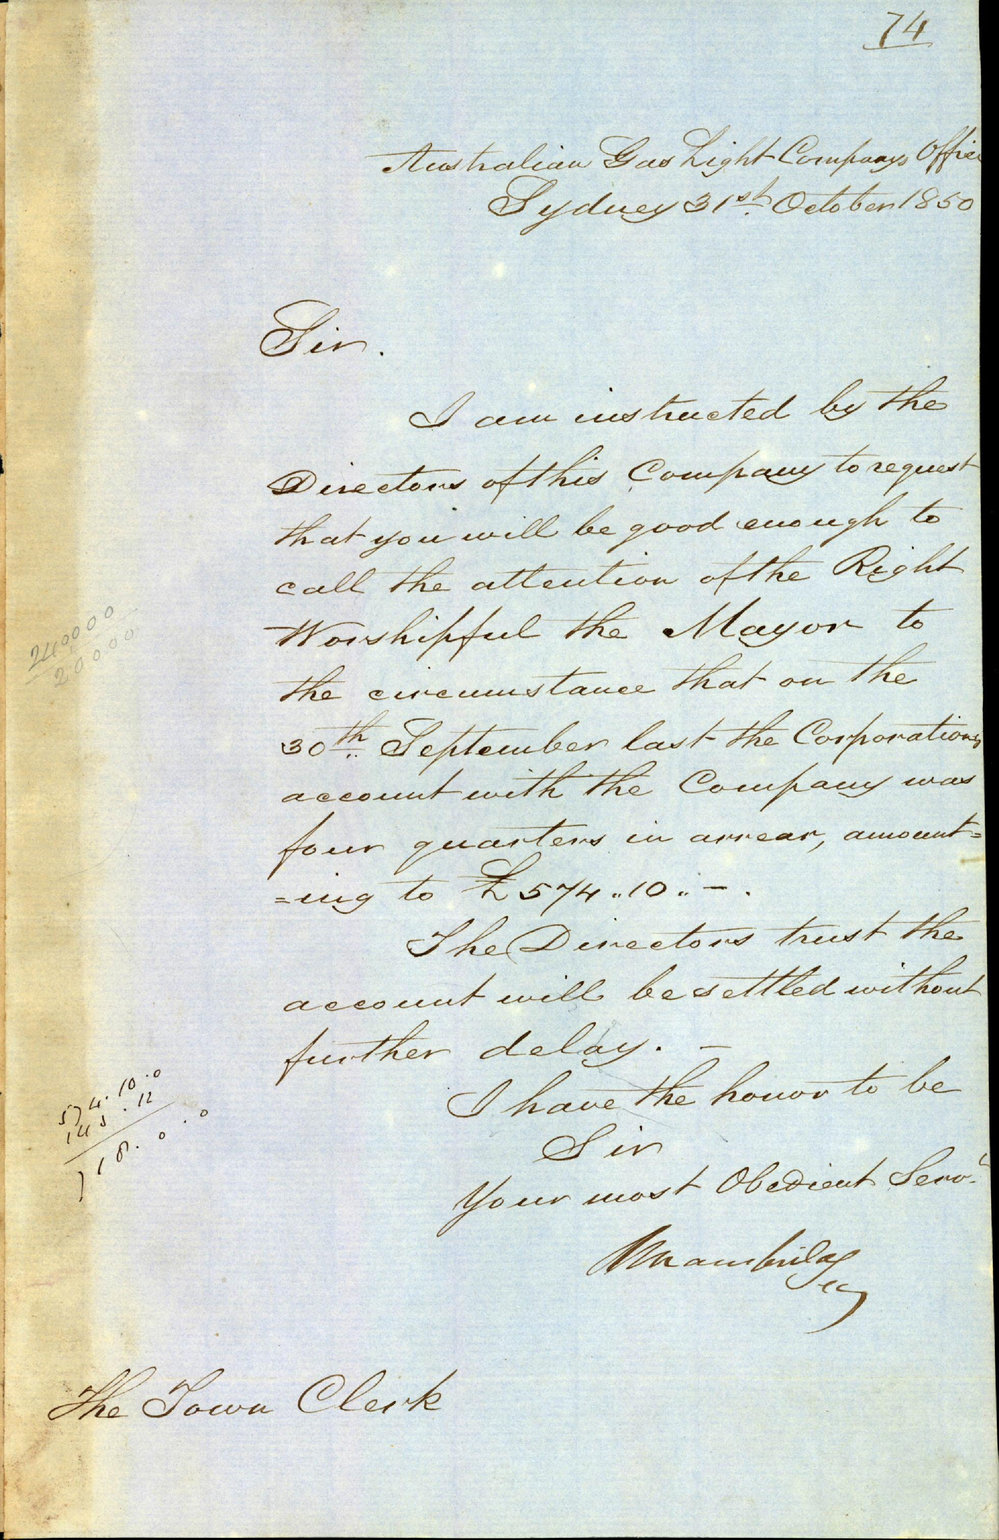 74
Australian Gas Light Companys Office
Sydney 31st. October 1850
Sir.
I am instructed by the
Directors of this Company to request
that you will be good enough to
call the attention of the Right
Worshipful the Mayor to
the circumstance that on the
30th. September last the Corporations
account with the Company was
four quarters in arrear, amount=
=ing to £574..10..-.
The Directors trust the
account will be settled without
further delay. -
I have the honor to be
Sir
Your most Obedient Servt.
The Town Clerk
240000
20000
574.10.0
143.12
718.0.0